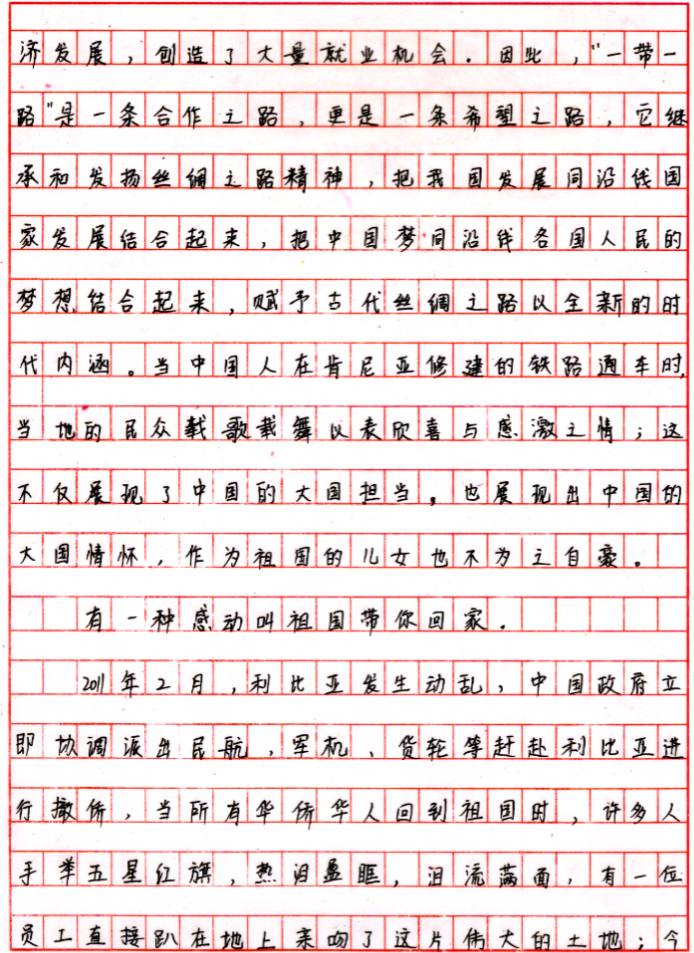 济发展，创造了大量就业机会．因此，“一带一
路”是一条合作之路，更是一条希望之路，它继
承和发扬丝绸之路精神，把我国发展同沿线国
家发展结合起来，把中国梦同沿线各国人民的
梦想结合起来，赋予古代丝绸之路以全新的时
代内涵。当中国人在肯尼亚修建的铁路通车时，
当地的民众载歌载舞以表欣喜与感激之情；这
不仅展现了中国的大国担当，也展现出中国的
大国情怀，作为祖国的儿女也不为之自豪。
有一种感动叫祖国带你回家．
2011年2月，利比亚发生动乱，中国政府立
即协调派出民航，军机、货轮等赶赴利比亚进
行撤侨，当所有华侨华人回到祖国时，许多人
手举五星红旗，热泪盈眶，泪流满面，有一位
员工直接趴在地上亲吻了这片伟大的土地；今